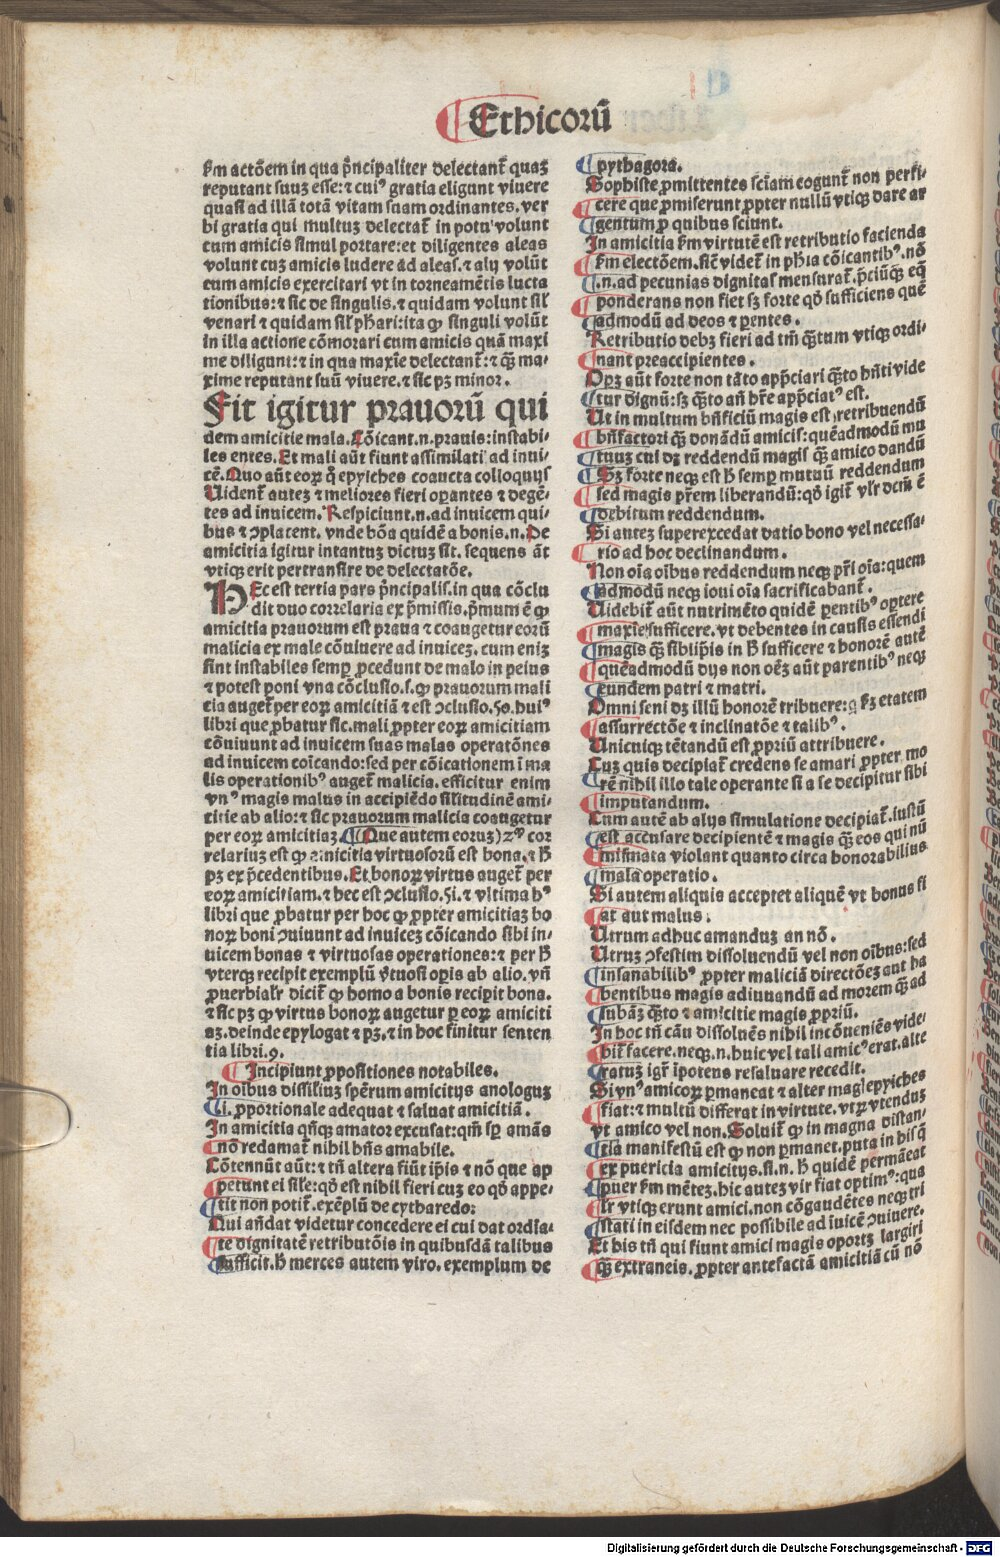 Ethicorū
ẜm actōem in qua p̄ncipaliter delectant̄ quaʒ
reputant suuʒ esse: ⁊ cuiꝰ gratia eligunt viuere
quasi ad illā totā vitam suam ordinantes. ver
bi gratia qui multuʒ delectat̄ in potu volunt
cum amicis simul portare: et diligentes aleas
volunt cuʒ amicis ludere ad aleas. ⁊ alij volūt
cum amicis exercitari vt in torneamētis lucta
tionibus: ⁊ sic de singulis. ⁊ quidam volunt sil̄
venari ⁊ quidam sil̄ pħari: ita ꝙ singuli volūt
in illa actione cōmorari cum amicis quā maxi
me diligunt: ⁊ in qua maxīe delectant̄: ⁊ qʒ̄ ma-
xime reputant suū viuere. ⁊ sic pʒ minor.
Fit igitur prauorū qui
dem amicitie mala. Cōicant .n. prauis: instabi-
les entes. Et mali aūt fiunt assimilati ad inui-
cē. Quo aūt eoꝝ q̄ epyiches coaucta colloquijs
Uident̄ auteʒ ⁊ meliores fieri oꝑantes ⁊ degē-
tes ad inuicem. Respiciunt .n. ad inuicem qui-
bus ⁊ ↄplacent. vnde bōa quidē a bonis .n. De
amicitia igitur intantuʒ dictuʒ sit. sequens āt
vtiqʒ erit pertransire de delectatōe.
Hec est tertia pars p̄ncipalis. in qua cōclu
dit duo correlaria ex p̄missis. p̄mum ē ꝙ
amicitia prauorum est praua ⁊ coaugetur eorū
malicia ex male cōuiuere ad inuiceʒ. cum eniʒ
sint instabiles semꝑ ꝓcedunt de malo in peius
⁊ potest poni vna cōclusio .s. ꝙ prauorum mali
cia auget̄ per eoꝝ amicitiā ⁊ est ↄclusio .50. huiꝰ
libri que ꝓbatur sic. mali ꝓpter eoꝝ amicitiam
cōuiuunt ad inuicem suas malas operatōnes
ad inuicem coīcando: sed per cōicationem ī ma
lis operationibꝰ auget̄ malicia. efficitur enim
vnꝰ magis malus in accipiēdo silitudinē ami-
citie ab alio: ⁊ sic prauorum malicia coaugetur
per eoꝝ amicitiaʒ. (Que autem eoruʒ) 2ꝰ cor
relariuʒ est ꝙ amicitia virtuosorū est bona. ⁊ ħ
pʒ ex p̄cedentibus. Et bonoꝝ virtus auget̄ per
eoꝝ amicitiam. ⁊ hec est ↄclusio .51. ⁊ vltima hꝰ
libri que ꝓbatur per hoc ꝙ ꝓpter amicitiaʒ bo
noꝝ boni ↄuiuunt ad inuiceʒ cōicando sibi in-
uicem bonas ⁊ virtuosas operationes: ⁊ per ħ
vterqʒ recipit exemplū v̄tuosi oꝑis ab alio. vn̄
ꝓuerbialr̄ dicit̄ ꝙ homo a bonis recipit bona.
⁊ sic pʒ ꝙ virtus bonoꝝ augetur ꝑ eoꝝ amiciti
aʒ. deinde epylogat ⁊ pʒ. ⁊ in hoc finitur senten
tia libri .9.
Incipiunt ꝓpositiones notabiles.
In oībus dissiliūʒ spērum amicitijs anologuʒ
.i. ꝓportionale adequat ⁊ saluat amicitiā.
In amicitia qn̄qʒ amator excusat: qm̄ sꝑ amās
nō redamat̄ nihil hn̄s amabile.
Cōtennūt aūt: ⁊ tn̄ altera fiūt ip̄is ⁊ nō que ap
petunt ei sil̄e: qd̄ est nihil fieri cuʒ eo qd̄ appe-
tit non potit̄. exēplū de cytharedo:
Qui an̄dat videtur concedere ei cui dat ordīa-
te dignitatē retributōis in quibusdā talibus
sufficit. ħ merces autem viro. exemplum de
pythagora.
Sophiste ꝓmittentes sciam cogunt̄ non perfi-
cere que ꝓmiserunt ꝓpter nullū vtiqʒ dare ar
gentum ꝓ quibus sciunt.
In amicitia ẜm virtutē est retributio facienda
ẜm electōem. sic̄ videt̄ in pħia cōicantibꝰ. nō
.n. ad pecunias dignitas mensurat̄. p̄ciūqʒ eq̄
ponderans non fiet sʒ forte qd̄ sufficiens quē
admodū ad deos ⁊ ꝑentes.
Retributio debʒ fieri ad tm̄ qʒ̄tum vtiqʒ ordi-
nant preaccipientes.
Opʒ aūt forte non tāto app̄ciari qʒ̄to hn̄ti vide
tur dignū: sʒ qʒ̄to an̄ hr̄e app̄ciatꝰ est.
Ut in multum bn̄ficiū magis est retribuendū
bn̄factori qʒ̄ donādū amicis: quēadmodū mu
tuuʒ cui dʒ reddendū magis qʒ̄ amico dandū
Sʒ forte neqʒ est ħ semꝑ mutuū reddendum
sed magis pr̄em liberandū: qd̄ igit̄ vl̄r dcm̄ ē
debitum reddendum.
Si auteʒ superexcedat datio bono vel necessa-
rio ad hoc declinandum.
Non oīa oībus reddendum neqʒ pr̄i oīa: quem
admodū neqʒ ioui oīa sacrificabant̄.
Uidebit̄ aūt nutrimēto quidē ꝑentibꝰ oꝑtere
maxīe sufficere. vt debentes in causis essendi
magis qʒ̄ sibiip̄is in ħ sufficere ⁊ honorē autē
quēadmodū dijs non oēʒ aūt parentibꝰ neqʒ
eundem patri ⁊ matri.
Omni seni dʒ illū honorē tribuere: q̄ ẜʒ etatem
assurrectōe ⁊ inclinatōe ⁊ talibꝰ.
Unicuiqʒ tētandū est ꝓpriū attribuere.
Cuʒ quis decipiat̄ credens se amari ꝓpter mo
rē nihil illo tale operante si a se decipitur sibi
imputandum.
Cum autē ab alijs simulatione decipiat̄. iustū
est accusare decipientē ⁊ magis qʒ̄ eos qui nū
mismata violant quanto circa honorabilius
mala operatio.
Si autem aliquis acceptet aliquē vt bonus fi
at aut malus.
Utrum adhuc amanduʒ an nō.
Utruʒ ↄfestim dissoluendū vel non oībus: sed
insanabilibꝰ ꝓpter maliciā directōeʒ aut ha
bentibus magis adiuuandū ad morem qʒ̄ ad
subāʒ qʒ̄to ⁊ amicitie magis ꝓpriū.
In hoc tn̄ cāu dissoluēs nihil incōueniēs vide-
bit̄ facere. neqʒ .n. huic vel tali amicꝰ erat. alte
ratuʒ igr̄ īpotens resaluare recedit.
Si vnꝰ amicoꝝ ꝑmaneat ⁊ alter magꝭ epyiches
fiat: ⁊ multū differat in virtute. vtꝝ vtenduʒ
vt amico vel non. Soluit̄ ꝙ in magna distan-
tia manifestū est ꝙ non ꝑmanet. puta in hiꝭ q̄
ex puericia amicitijs. si .n. ħ quidē permāeat
puer ẜm mēteʒ. hic auteʒ vir fiat optimꝰ: qua
lr̄ vtiqʒ erunt amici. non cōgaudētes neqʒ tri
stati in eisdem nec possibile ad īuicē ↄuiuere.
Et his tn̄ qui fiunt amici magis oportʒ largiri
qʒ̄ extraneis. ꝓpter antefactā amicitiā cū nō
Digitalisierung gefördert durch die Deutsche Forschungsgemeinschaft - DFG